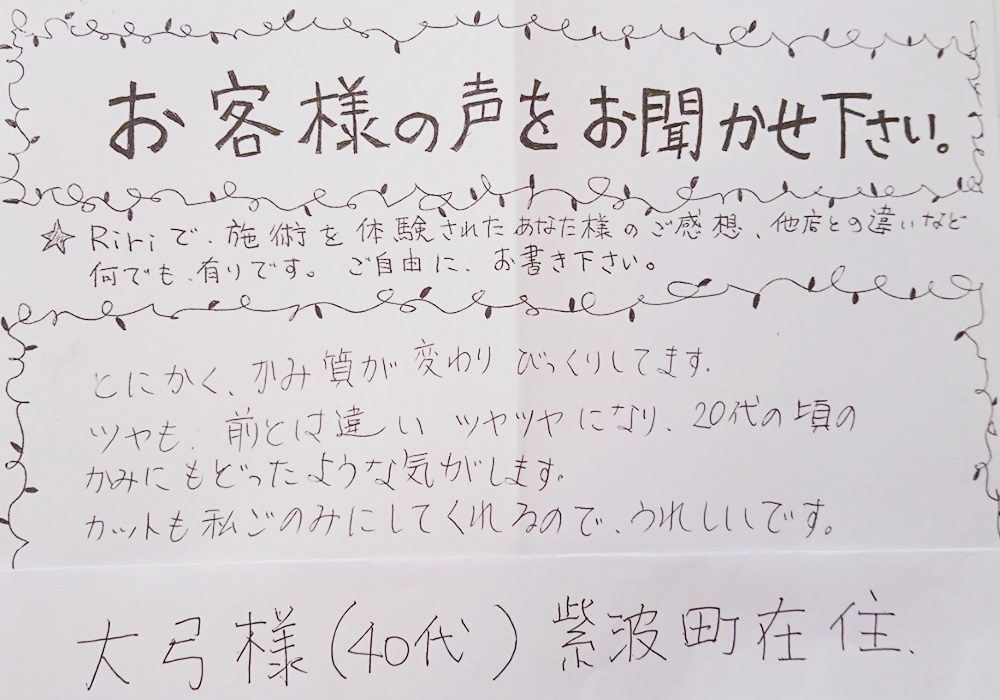 お客様の声をお聞かせ下さい。
☆Ririで、施術を体験されたあなた様のご感想、他店との違いなど
何でも、有りです。ご自由に、お書き下さい。
とにかく、かみ質が変わりびっくりしてます。
ツヤも、前とは違いツヤツヤになり、20代の頃の
かみにもどったような気がします。
カットも私ごのみにしてくれるので、うれしいです。
大弓様(40代)紫波町在住、